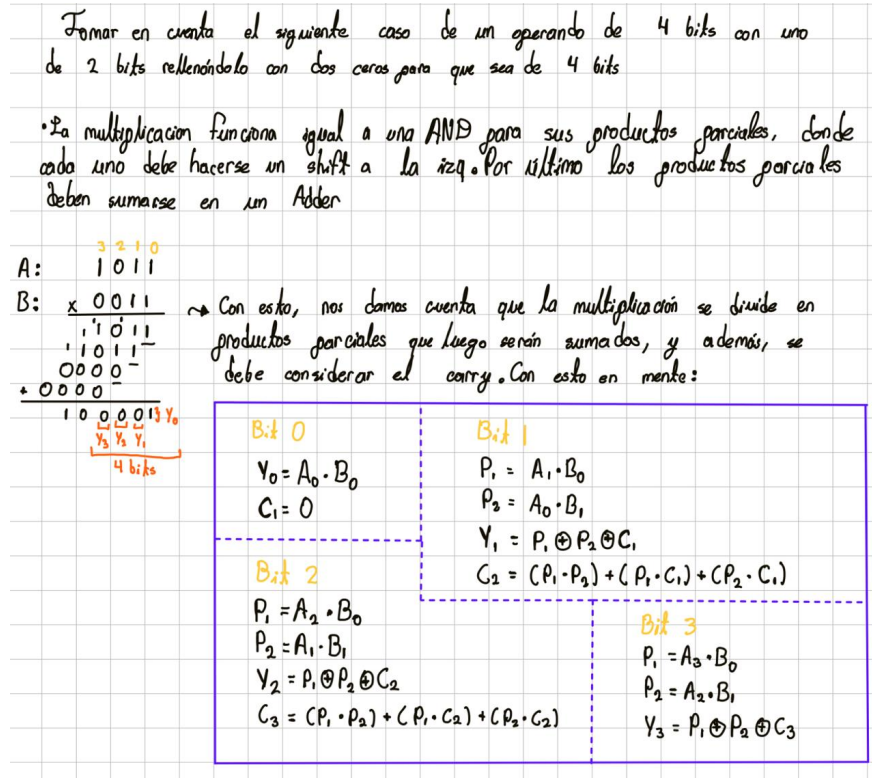 Tomar en cuenta el siguiente caso de un operando de 4 bits con uno
de 2 bits rellenándolo con dos ceros para que sea de 4 bits
•La multiplicacion funciona igual a una AND para sus productos parciales, donde
cada uno debe hacerse un shift a la izq. Por último los productos parciales
deben sumarse en un Adder
3 2 1 0
A: 1 0 1 1
B: x 0 0 1 1
1 1 1 0 1 1
1 1 0 1 1 -
0 0 0 0 -
+ 0 0 0 0 -
1 0 0 0 0 1 } Y₀
Y₃ Y₂ Y₁
4 bits
↝ Con esto, nos damos cuenta que la multiplicación se divide en
productos parciales que luego serán sumados, y además, se
debe considerar el carry. Con esto en mente:
Bit 0
Y₀ = A₀ · B₀
C₁ = 0
Bit 1
P₁ = A₁ · B₀
P₂ = A₀ · B₁
Y₁ = P₁ ⊕ P₂ ⊕ C₁
C₂ = (P₁ · P₂) + (P₁ · C₁) + (P₂ · C₁)
Bit 2
P₁ = A₂ · B₀
P₂ = A₁ · B₁
Y₂ = P₁ ⊕ P₂ ⊕ C₂
C₃ = (P₁ · P₂) + (P₁ · C₂) + (P₂ · C₂)
Bit 3
P₁ = A₃ · B₀
P₂ = A₂ · B₁
Y₃ = P₁ ⊕ P₂ ⊕ C₃